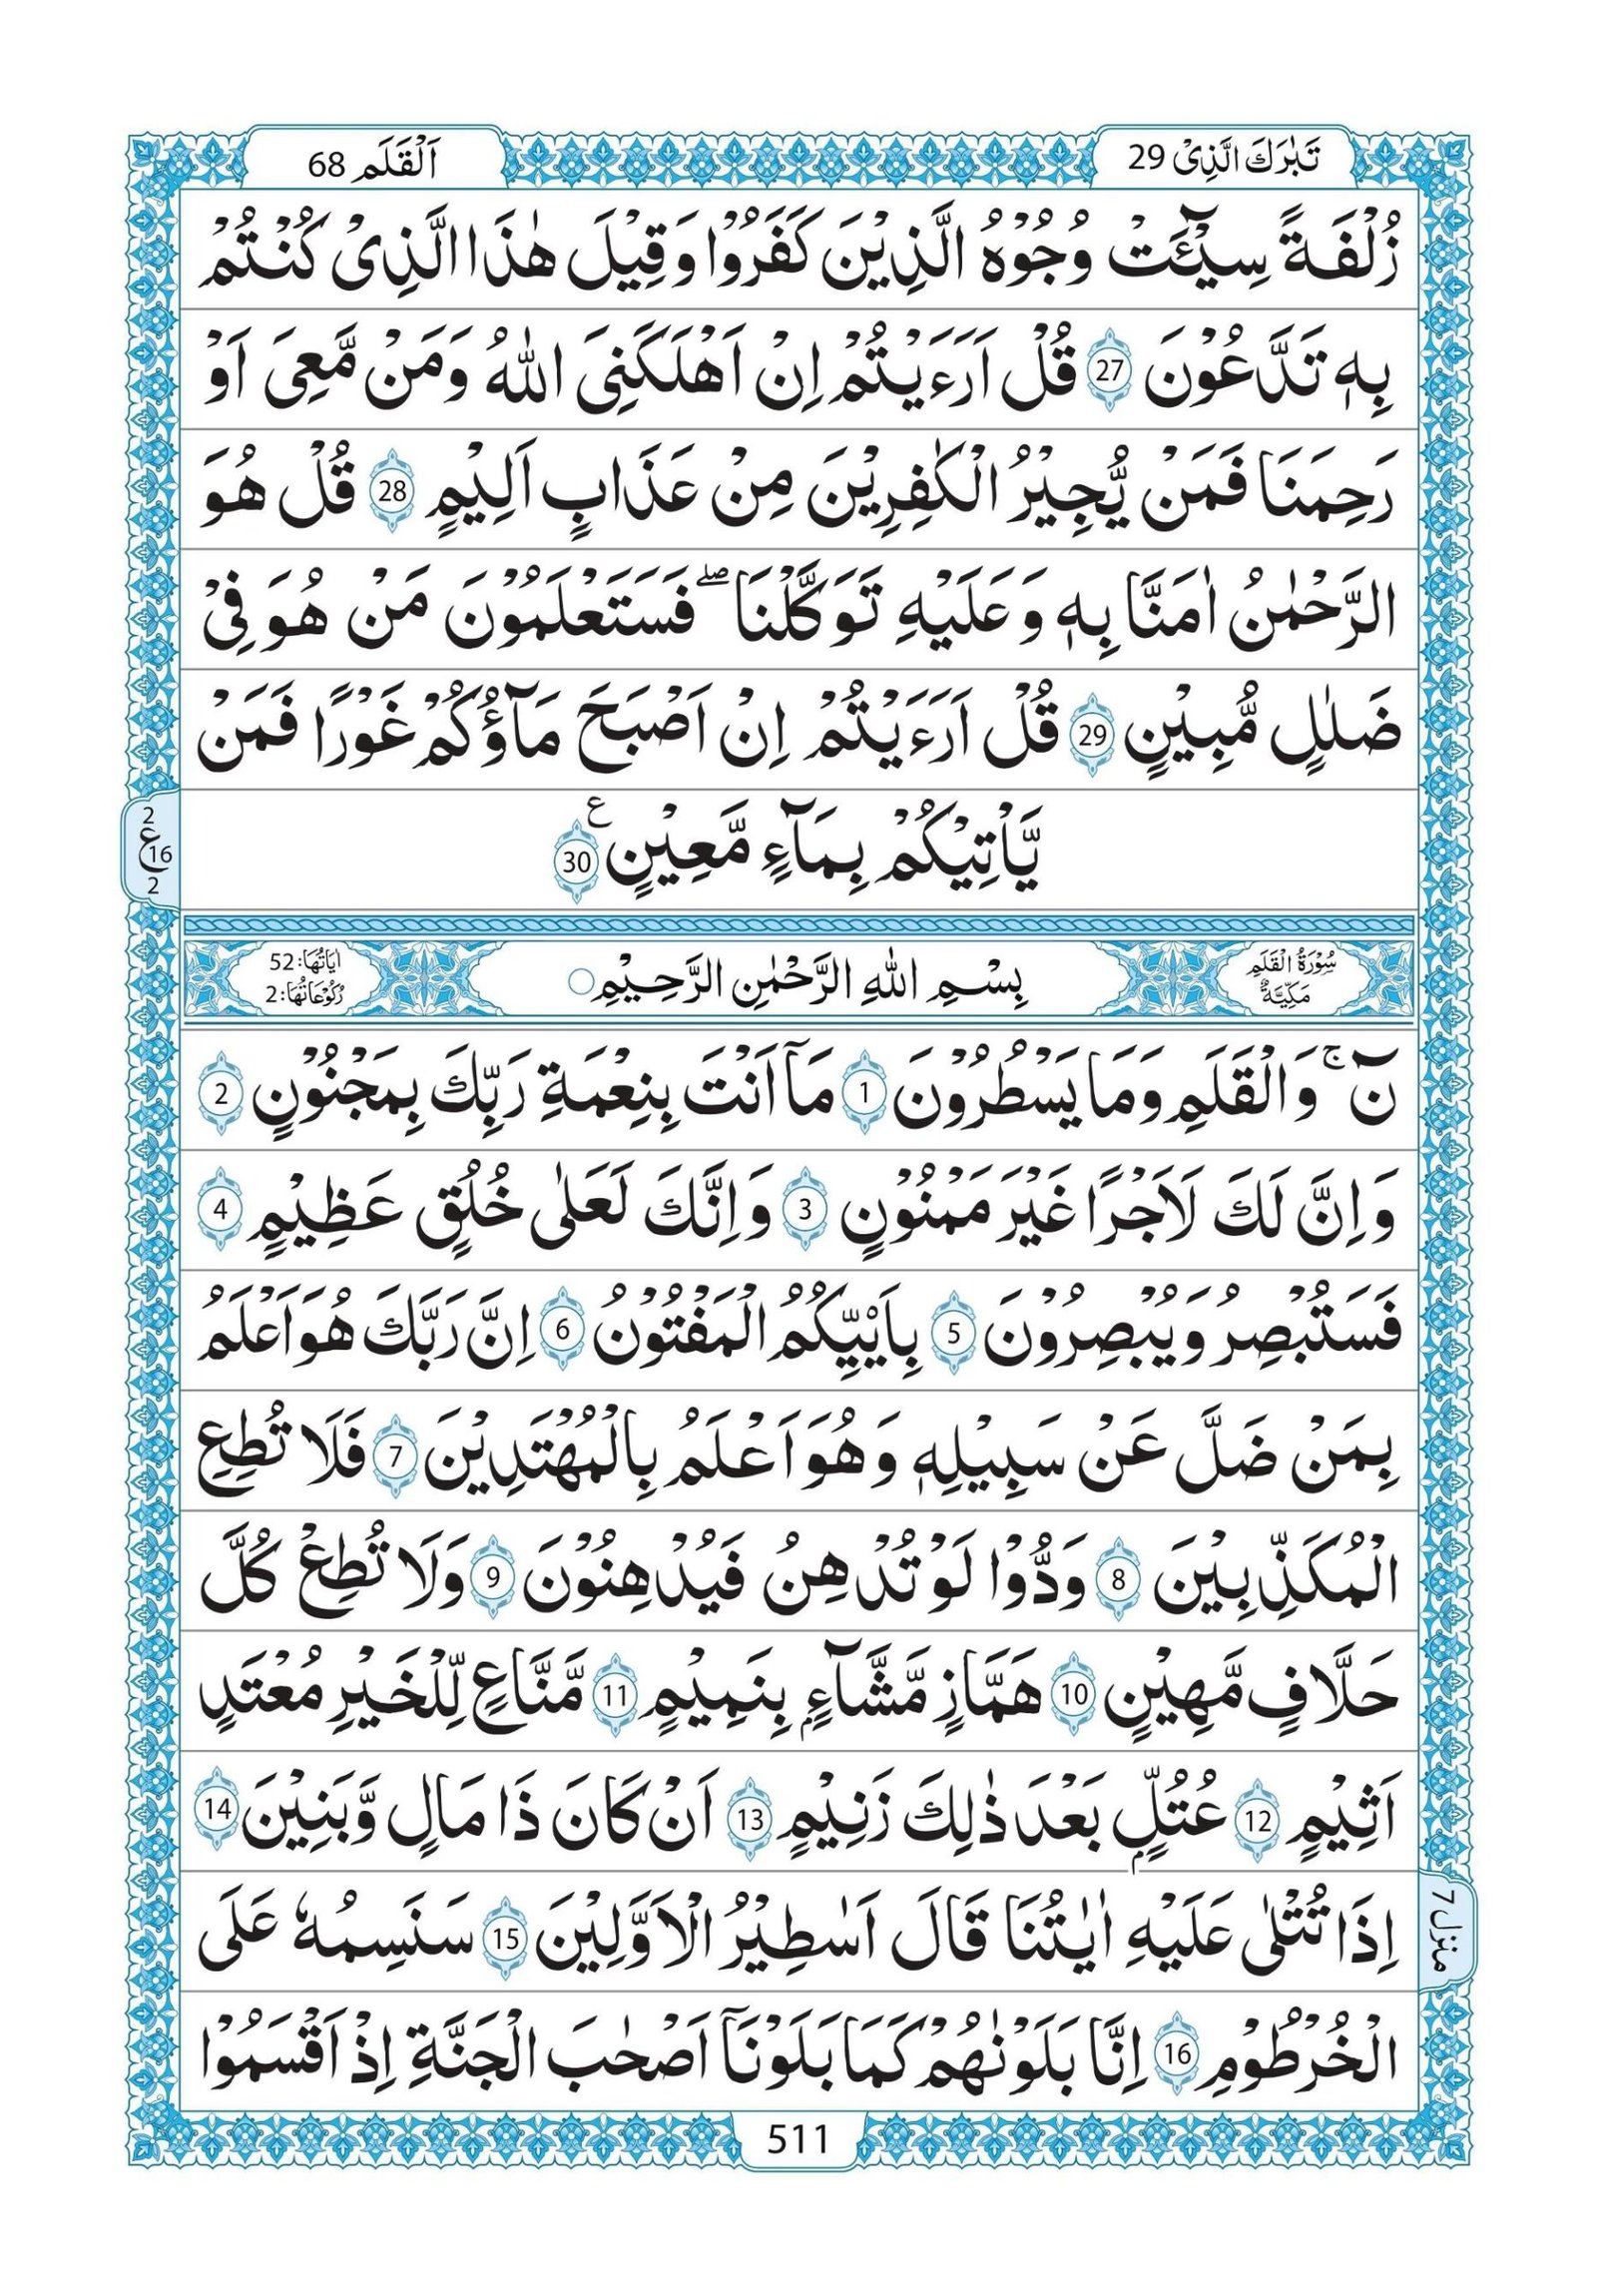 تَبٰرَكَ الَّذِیْ 29
اَلْقَلَم 68
زُلْفَةً سِیْٓـَٔتْ وُجُوْهُ الَّذِیْنَ كَفَرُوْا وَ قِیْلَ هٰذَا الَّذِیْ كُنْتُمْ
بِهٖ تَدَّعُوْنَ 27 قُلْ اَرَءَیْتُمْ اِنْ اَهْلَكَنِیَ اللّٰهُ وَمَنْ مَّعِیَ اَوْ
رَحِمَنَا فَمَنْ یُّجِیْرُ الْكٰفِرِیْنَ مِنْ عَذَابٍ اَلِیْمٍ 28 قُلْ هُوَ
الرَّحْمٰنُ اٰمَنَّا بِهٖ وَ عَلَیْهِ تَوَكَّلْنَا ۖ فَسَتَعْلَمُوْنَ مَنْ هُوَ فِیْ
ضَلٰلٍ مُّبِیْنٍ 29 قُلْ اَرَءَیْتُمْ اِنْ اَصْبَحَ مَآؤُكُمْ غَوْرًا فَمَنْ
یَّاْتِیْكُمْ بِمَآءٍ مَّعِیْنٍ 30 ع
2 ع 16 2
سُوْرَةُ الْقَلَمِ
مَكِّیَّةٌ
بِسْمِ اللّٰهِ الرَّحْمٰنِ الرَّحِیْمِ
اٰیَاتُهَا: 52
رُكُوْعَاتُهَا: 2
نٓ ۚ وَ الْقَلَمِ وَ مَا یَسْطُرُوْنَ 1 مَاۤ اَنْتَ بِنِعْمَةِ رَبِّكَ بِمَجْنُوْنٍ 2
وَ اِنَّ لَكَ لَاَجْرًا غَیْرَ مَمْنُوْنٍ 3 وَ اِنَّكَ لَعَلٰی خُلُقٍ عَظِیْمٍ 4
فَسَتُبْصِرُ وَ یُبْصِرُوْنَ 5 بِاَیْىِّكُمُ الْمَفْتُوْنُ 6 اِنَّ رَبَّكَ هُوَ اَعْلَمُ
بِمَنْ ضَلَّ عَنْ سَبِیْلِهٖ وَ هُوَ اَعْلَمُ بِالْمُهْتَدِیْنَ 7 فَلَا تُطِعِ
الْمُكَذِّبِیْنَ 8 وَدُّوْا لَوْ تُدْهِنُ فَیُدْهِنُوْنَ 9 وَلَا تُطِعْ كُلَّ
حَلَّافٍ مَّهِیْنٍ 10 هَمَّازٍ مَّشَّآءٍۭ بِنَمِیْمٍ 11 مَّنَّاعٍ لِّلْخَیْرِ مُعْتَدٍ
اَثِیْمٍ 12 عُتُلٍّۭ بَعْدَ ذٰلِكَ زَنِیْمٍ 13 اَنْ كَانَ ذَا مَالٍ وَّ بَنِیْنَ 14
اِذَا تُتْلٰی عَلَیْهِ اٰیٰتُنَا قَالَ اَسٰطِیْرُ الْاَوَّلِیْنَ 15 سَنَسِمُهٗ عَلَی
الْخُرْطُوْمِ 16 اِنَّا بَلَوْنٰهُمْ كَمَا بَلَوْنَاۤ اَصْحٰبَ الْجَنَّةِ اِذْ اَقْسَمُوْا
منزل ۷
511